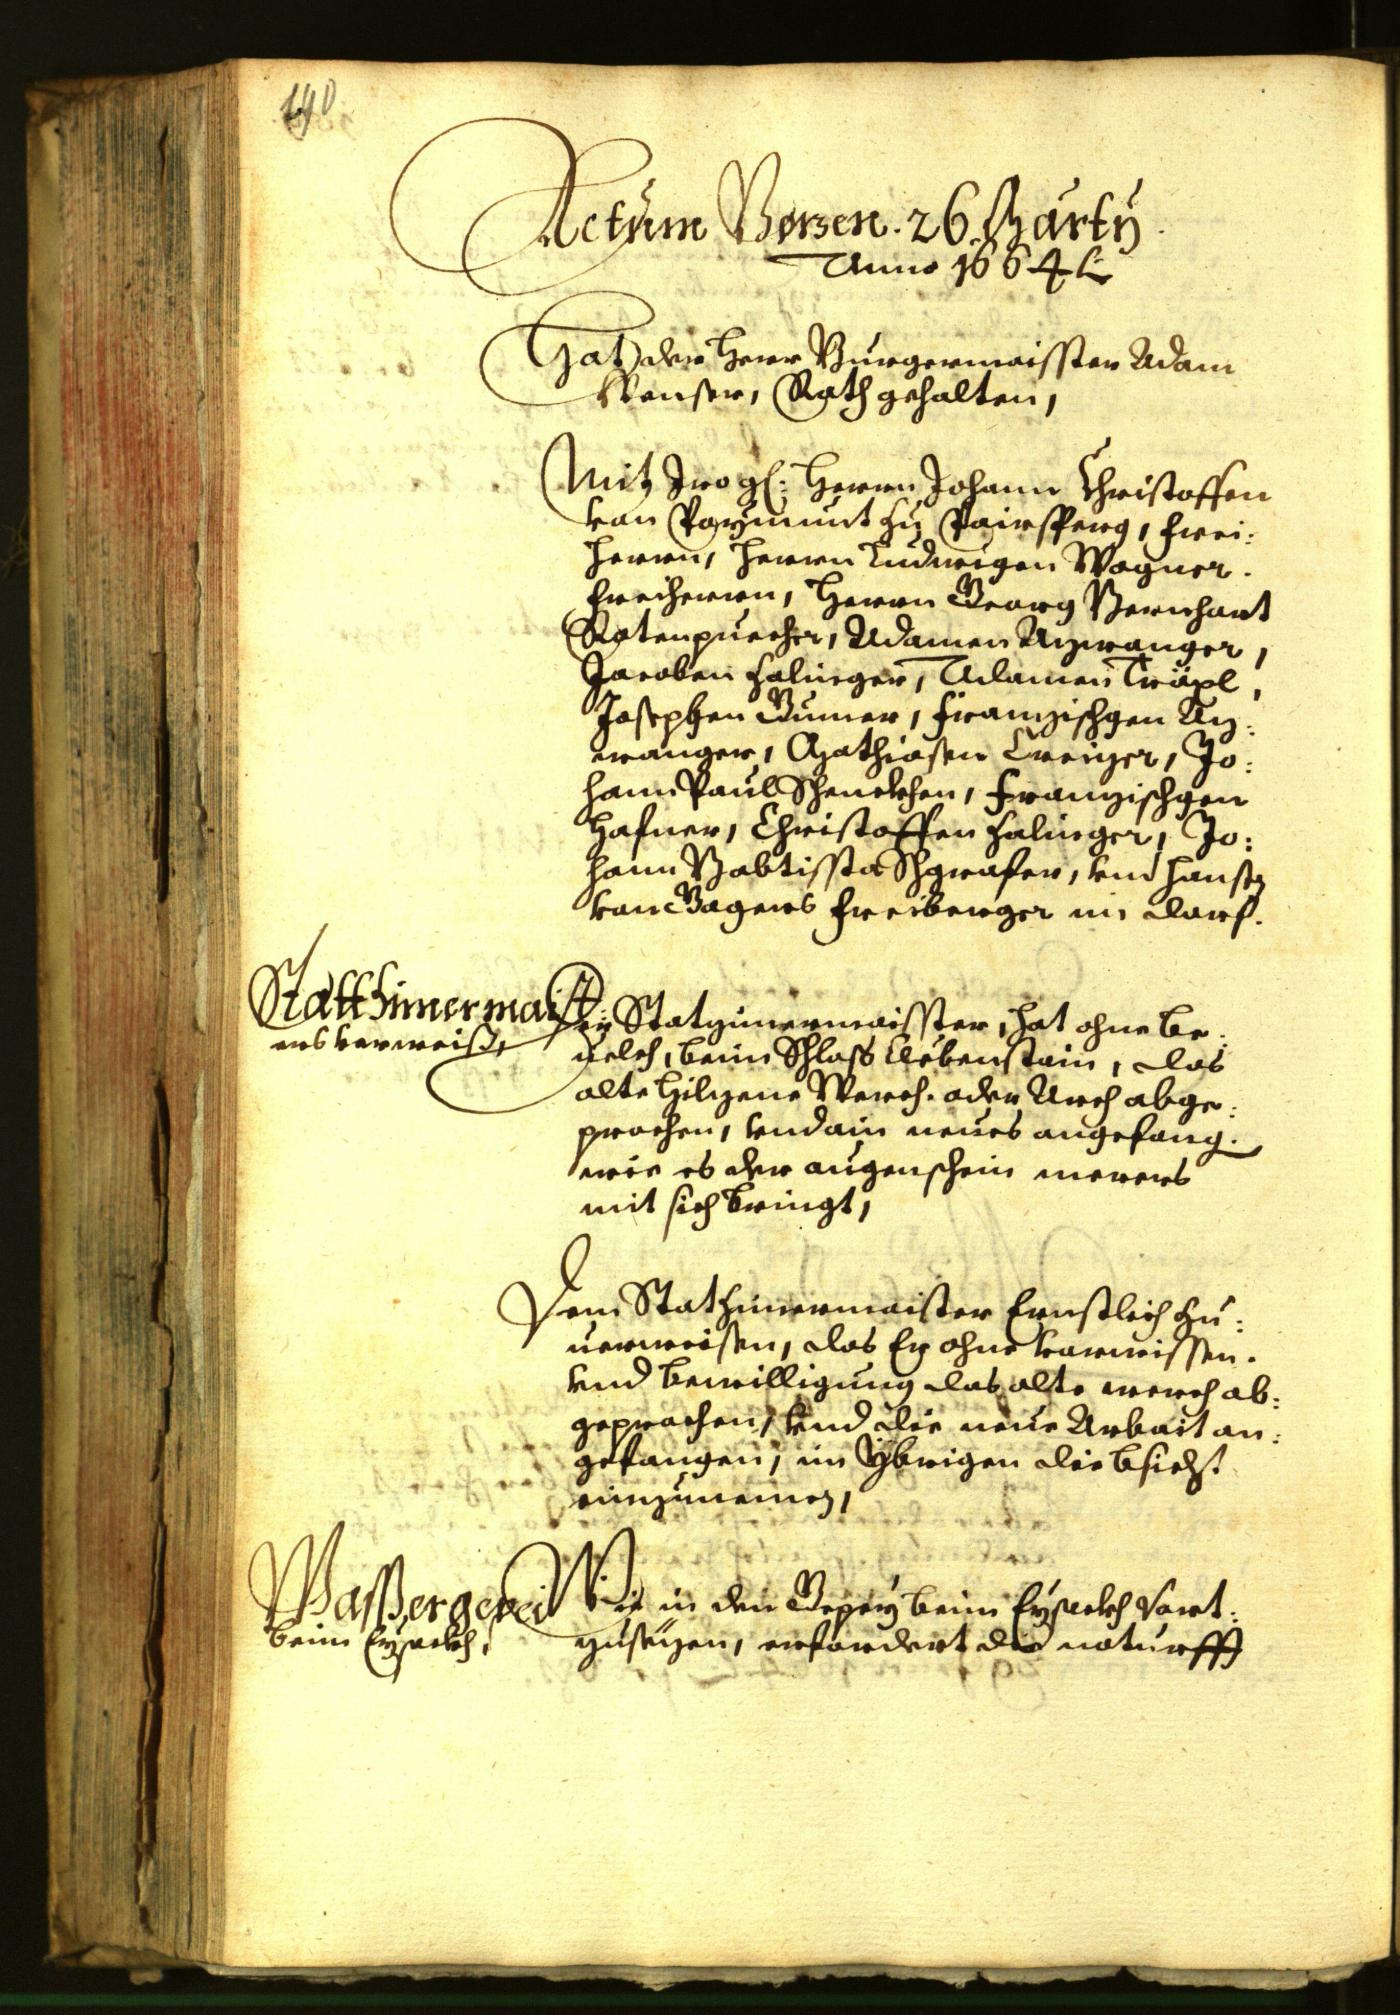 140
Actum Bozen. 26 Marty
Anno 1664 etc.
Hat der Herr Burgermaisster Adam
Wenser, Rath gehalten,
Mit Iro gl: Herrn Johann Christoffen
von Payrmunt zu Pairsperg, frei:
herrn, Herrn Ludwigen Wagner.
freiherrn, Herrn Georg Bernhart
Rotenpuecher, Adamen Azwanger,
Jacoben Zalinger, Adamen Träxl,
Josephen Gumer, Franzischgen Az:
wanger, Mathiasen Creizer, Jo:
hann Paul Schenckhen, Franzischgen
Hafner, Christoffen Zalinger, Jo:
hann Babtissta Schgrafer, vnd Hansen
von Wagers Freiberger im Dorf.
Statt Zimermaist
ers verweiß,
Der Statzimermaisster, hat ohne be:
uelch, beim Schloss Clebenstain, das
alte hilzene Werch. oder Arch abge:
prochen, vnd ain neues angefang.
wie es der augenschein merers
mit sich bringt,
Dem Statzimermaister Ernstlich zu:
uerweisen, das Er ohne vorwissen.
vnd bewilligung das alte werch ab:
geprochen, vnd die neue Arbait an:
gefangen, im ybrigen die bsicht
einzunemen,
Wasser gepei
beim Eysackh,
Wie in den Gepey beim Eysackh fort:
zusezen, erfordert die noturfft